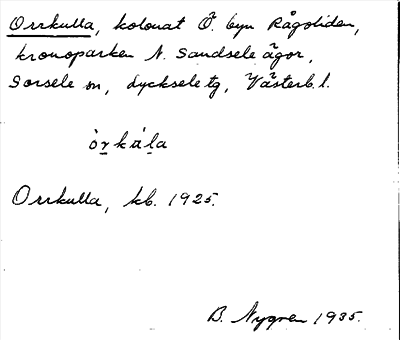 Orrkulla, kolonat Ö. byn Rågoliden,
kronoparken N. Sandsele ägor,
Sorsele sn, Lycksele tg, Västerb. l.
Orrkulla, kb. 1925.
B. Nygren 1935.